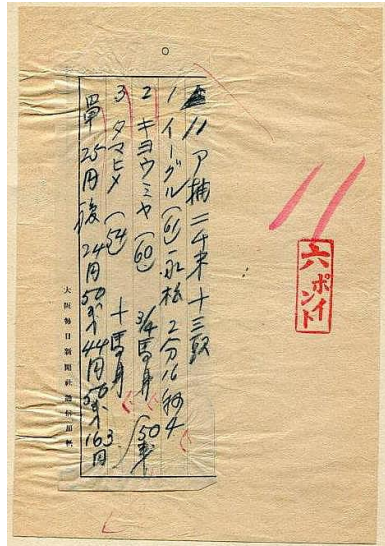 11
六ポイント
11 ア抽 二千米 十三頭
1 イーグル (61) 永松 2分16秒4
2 キヨウミヤ (60) 3/4馬身
3 タマヒメ (54) 十馬身
單 25円 複 24円50銭 44円50銭 163円
大阪每日新聞社通信用紙